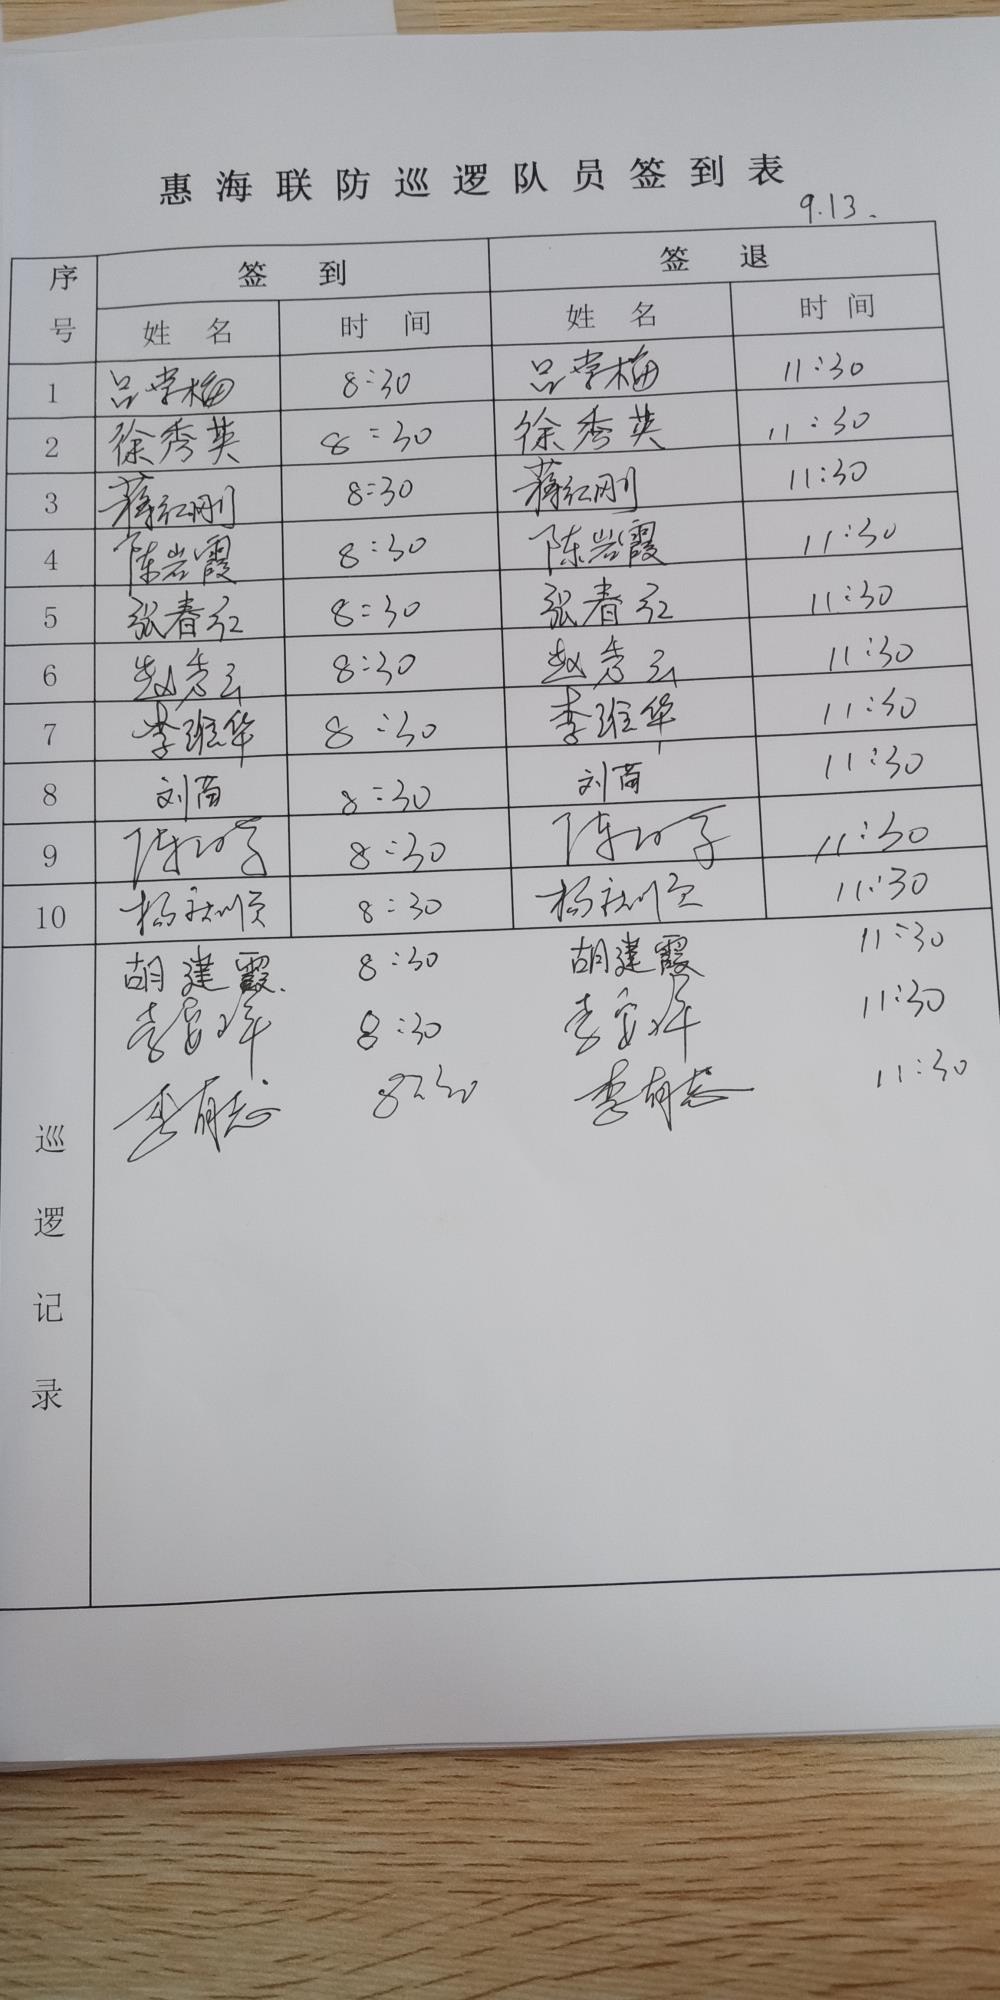 惠海联防巡逻队员签到表
9.13.
序号 签到 签退
姓名 时间 姓名 时间
1 吕学梅 8:30 吕学梅 11:30
2 徐秀英 8:30 徐秀英 11:30
3 蒋红刚 8:30 蒋红刚 11:30
4 陈岩霞 8:30 陈岩霞 11:30
5 张春红 8:30 张春红 11:30
6 赵秀云 8:30 赵秀云 11:30
7 李维华 8:30 李维华 11:30
8 刘苗 8:30 刘苗 11:30
9 陈 8:30 陈 11:30
10 杨 顺 8:30 杨 顺 11:30
胡建霞. 8:30 胡建霞 11:30
李 年 8:30 李 年 11:30
李有志 8:30 李有志 11:30
巡逻记录